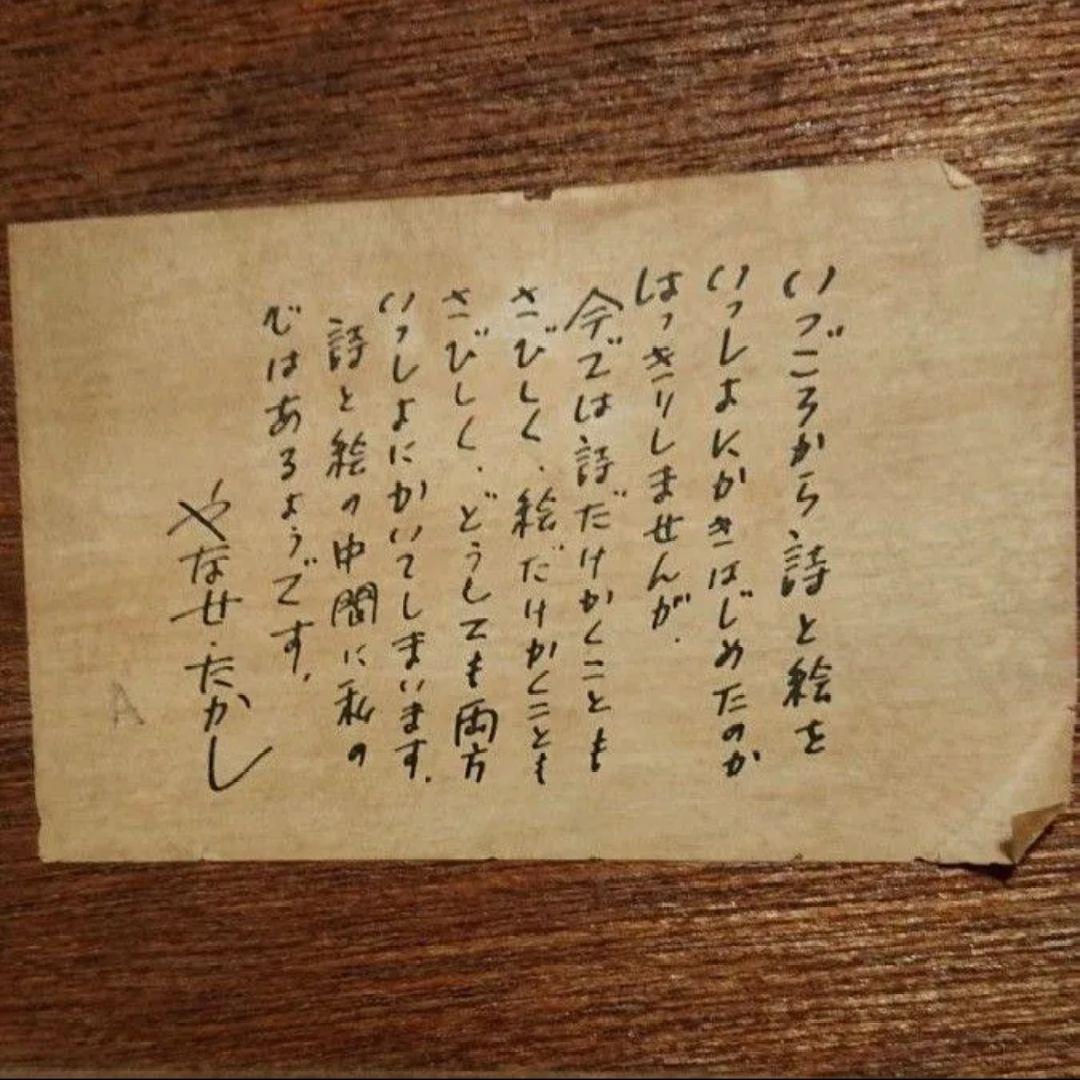 いつごろから詩と絵を
いっしよにかきはじめたのか
はっきりしませんが、
今では詩だけかくことも
さびしく、絵だけかくことも
さびしく、どうしても両方
いっしよにかいてしまいます。
詩と絵の中間に私の
ではあるようです。
やなせ・たかし
A